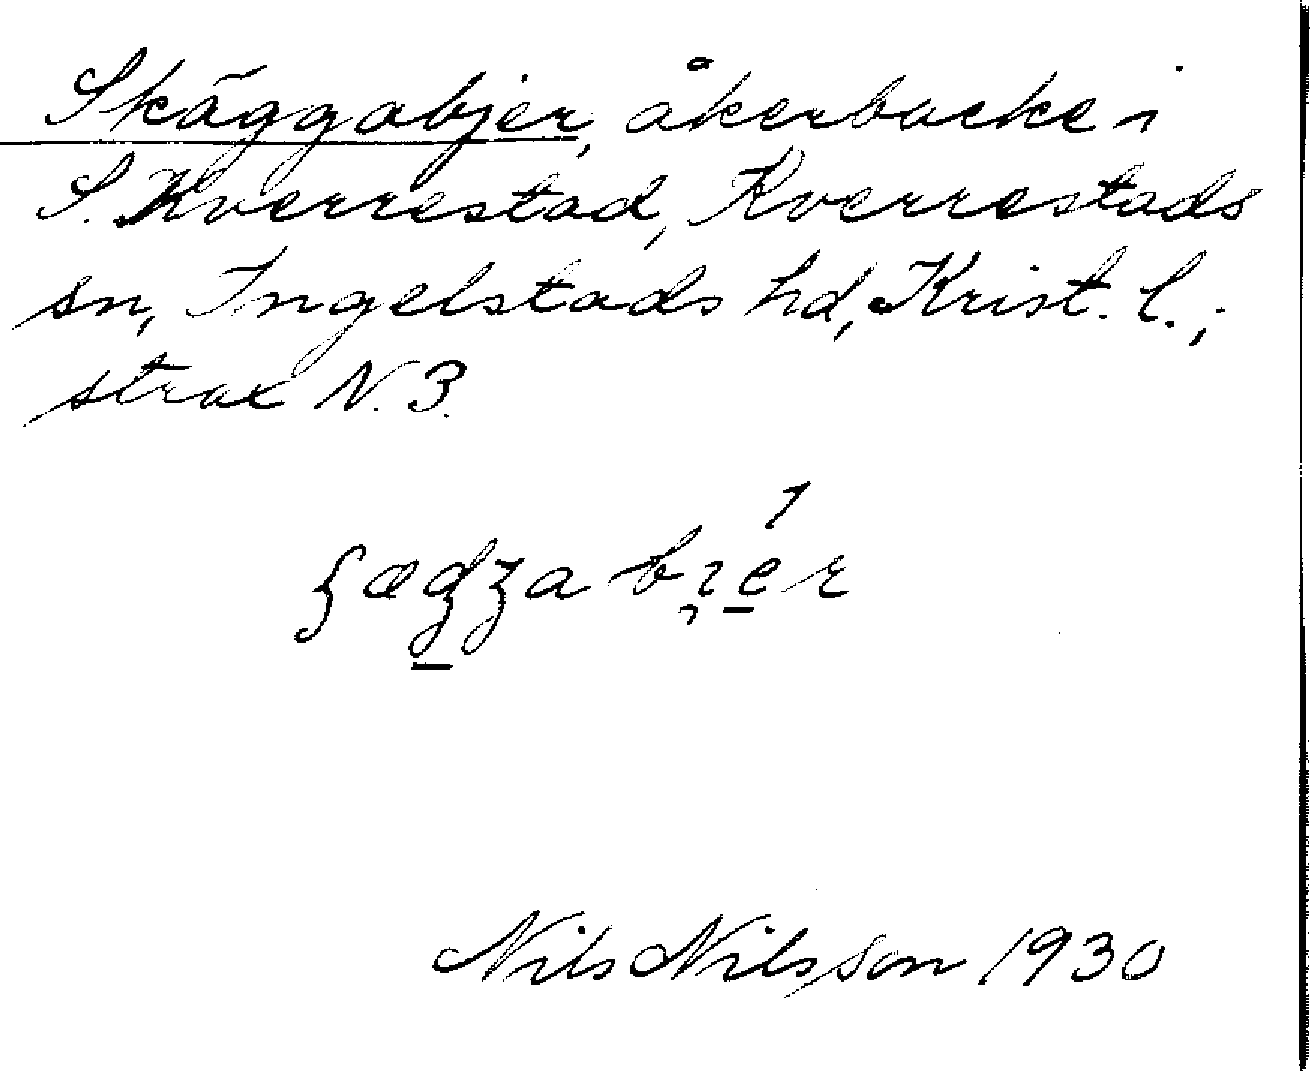 Skäggabjer, åkerbacke i
S. Kverrestad, Kverrestads
sn, Ingelstads hd, Krist. l.;
strax N. 3.
Nils Nilsson 1930